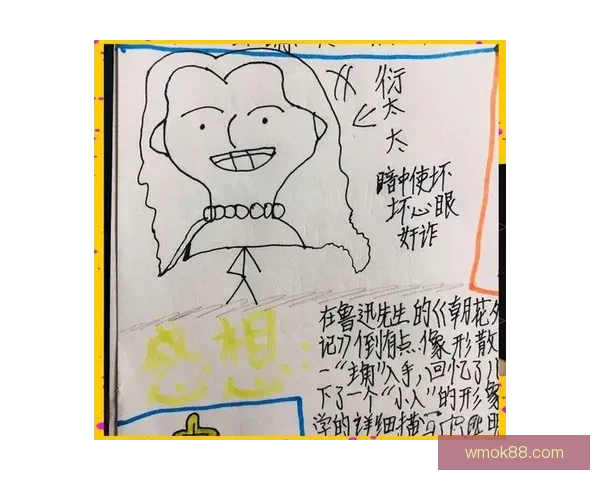 衍
太
太
暗中使坏
坏心眼
奸诈
感想:
在鲁迅先生的《朝花夕
记》倒有点像形散
一"主角"入手,回忆了儿
下了一个"小人"的形象
学的详细描写
wmok88.com